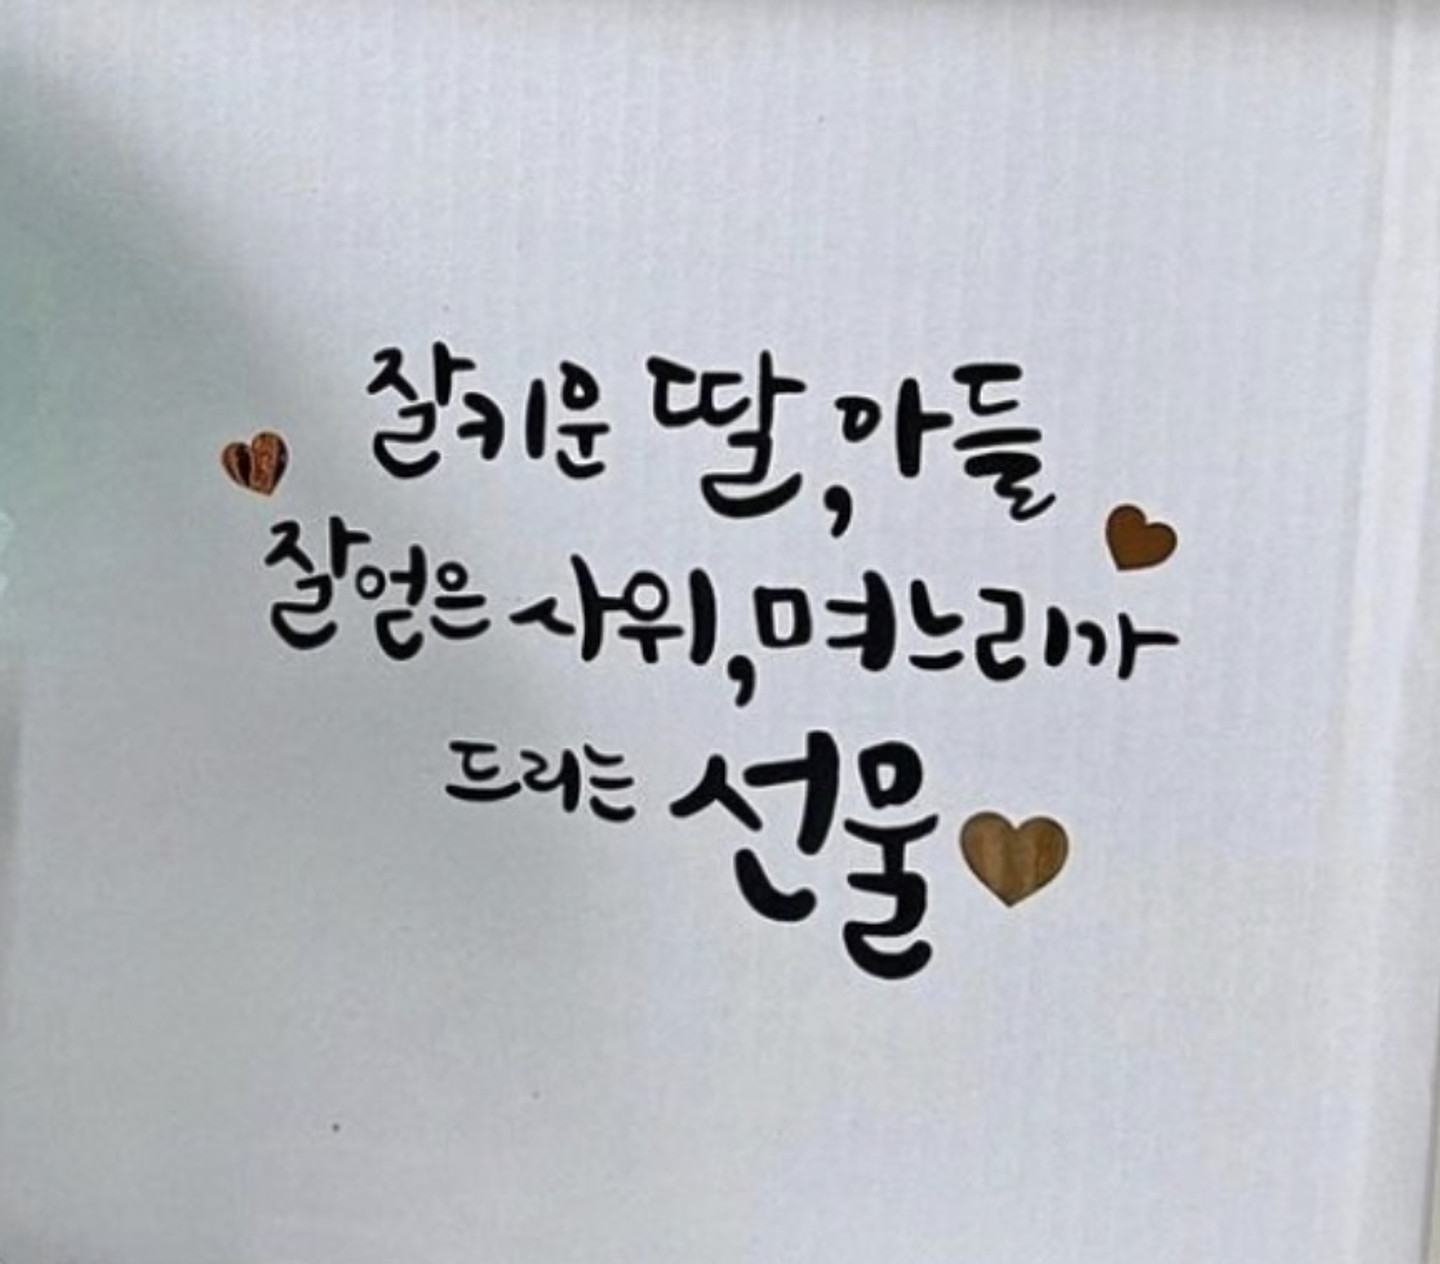 잘키운 딸, 아들
잘얻은 사위, 며느리가
드리는 선물